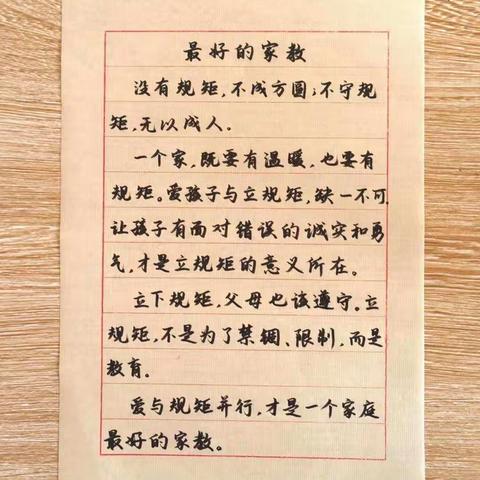 最好的家教
没有规矩,不成方圆;不守规
矩,无以成人.
一个家,既要有温暖,也要有
规矩。爱孩子与立规矩,缺一不可.
让孩子有面对错误的诚实和勇
气,才是立规矩的意义所在。
立下规矩,父母也该遵守.立
规矩,不是为了禁锢、限制,而是
教育.
爱与规矩并行,才是一个家庭
最好的家教。